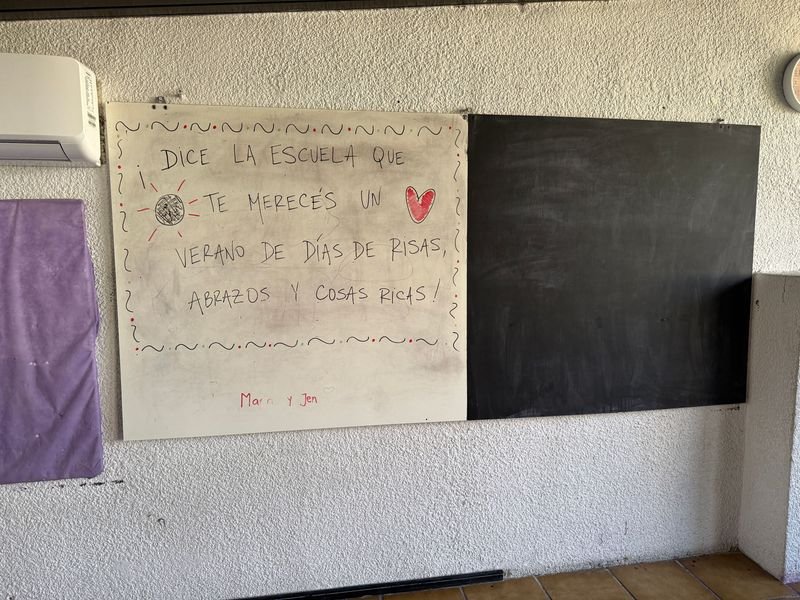 DICE LA ESCUELA QUE
¡ TE MERECÉS UN
VERANO DE DÍAS DE RISAS,
ABRAZOS Y COSAS RICAS!
y Jen